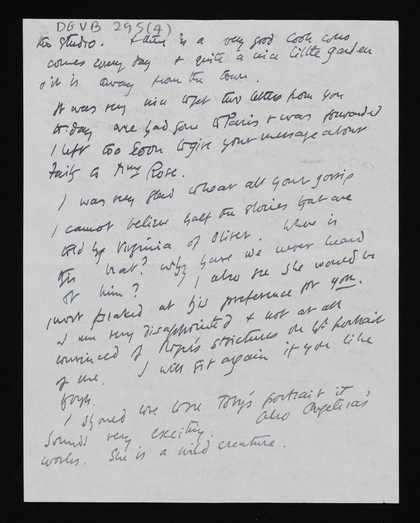 DGVB 295(4)
the studio. There is a very good cook who
comes every day & quite a nice little garden
& it is away from the town.
It was very nice to get two letters from you
to-day one had gone to Paris & was forwarded
I left too soon to give your message about
to Rose.
I was very glad to hear all your gossip
I cannot believe half the stories that are
told by Virginia of Oliver. Who is
this brat? Why have we never heard
of him? I also see she would be
most piqued at his preference for you.
I am very disappointed & not at all
convinced of Roger's strictures on yr portrait
of me. I will sit again if you like
for
I should love to see Tony's portrait it
sounds very exciting. Also Angelica's
works. She is a wild creature.